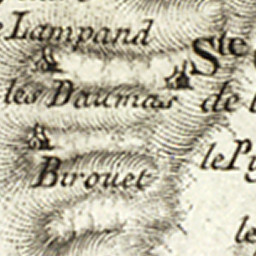 Lampand
Ste
les Daumas
de
le Py
Birouet
le